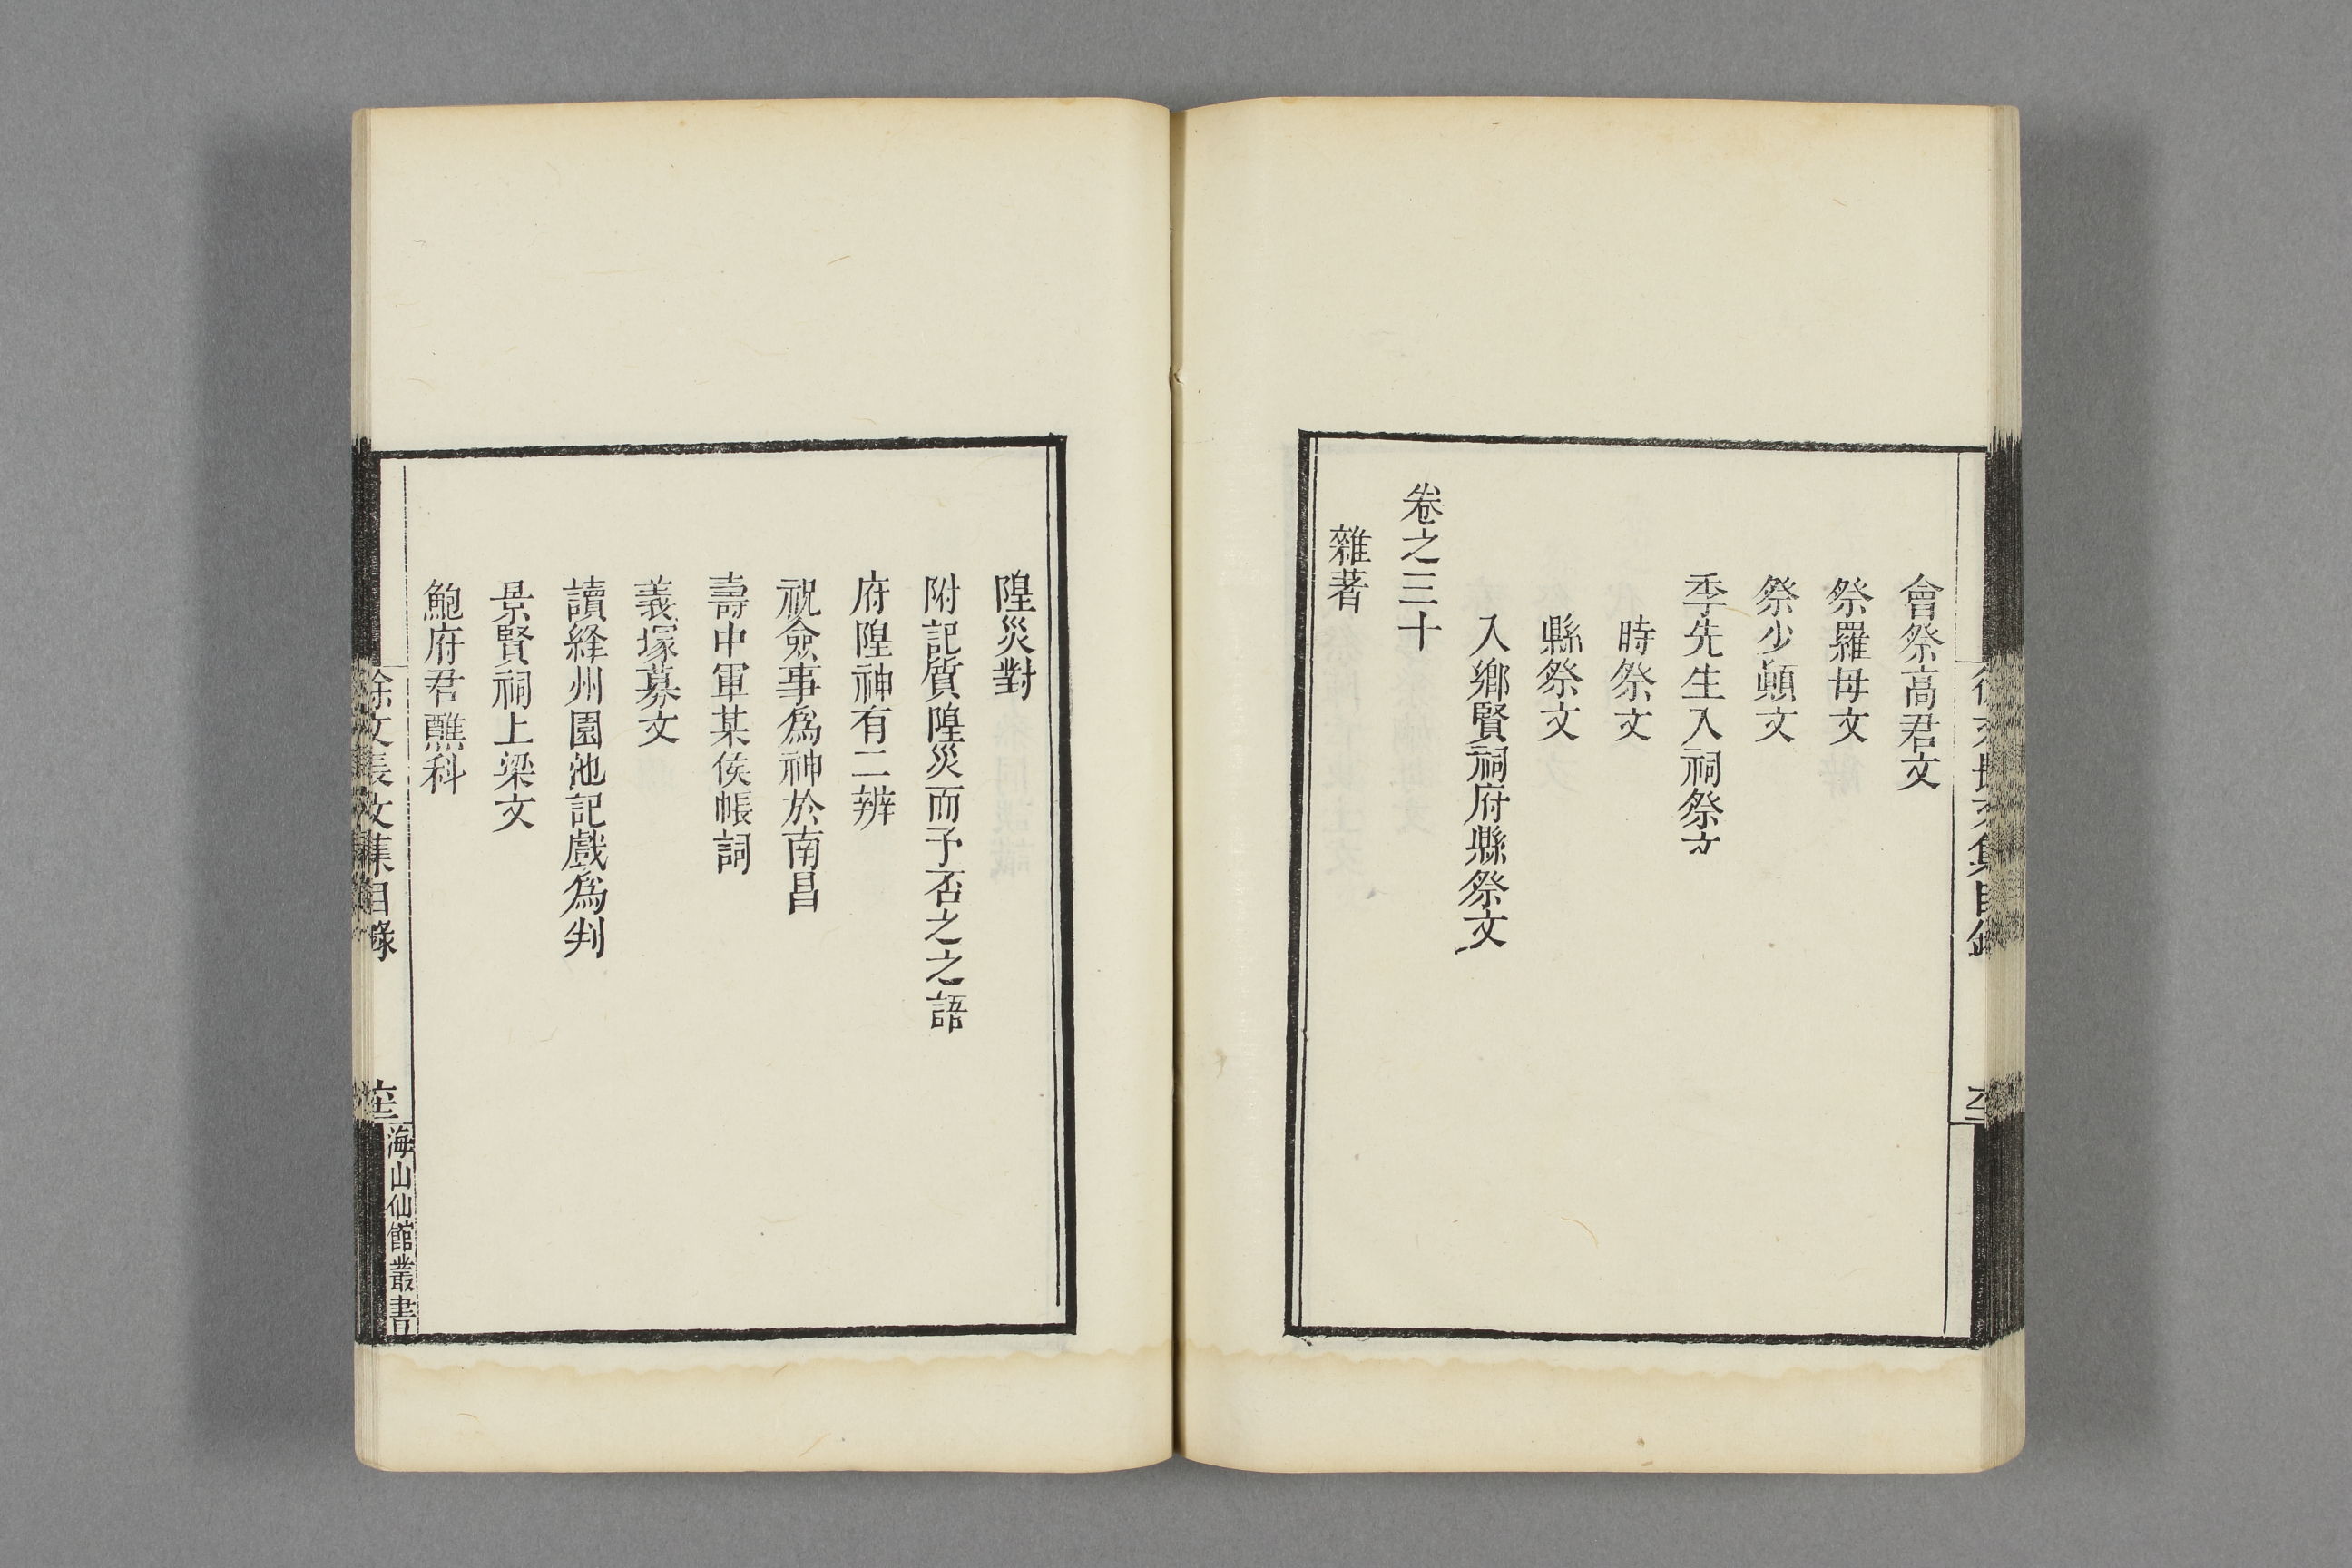 會祭高君文
祭羅母文
祭少顛文
季先生入祠祭文
時祭文
縣祭文
入鄉賢祠府縣祭文
卷之三十
雜著
隍災對
附記質隍災而予否之之語
府隍神有二辨
祝僉事爲神於南昌
壽中軍某侯帳詞
義塚募文
讀絳州園池記戲爲判
景賢祠上梁文
鮑府君醮科
徐文長文集目錄
海山仙館叢書